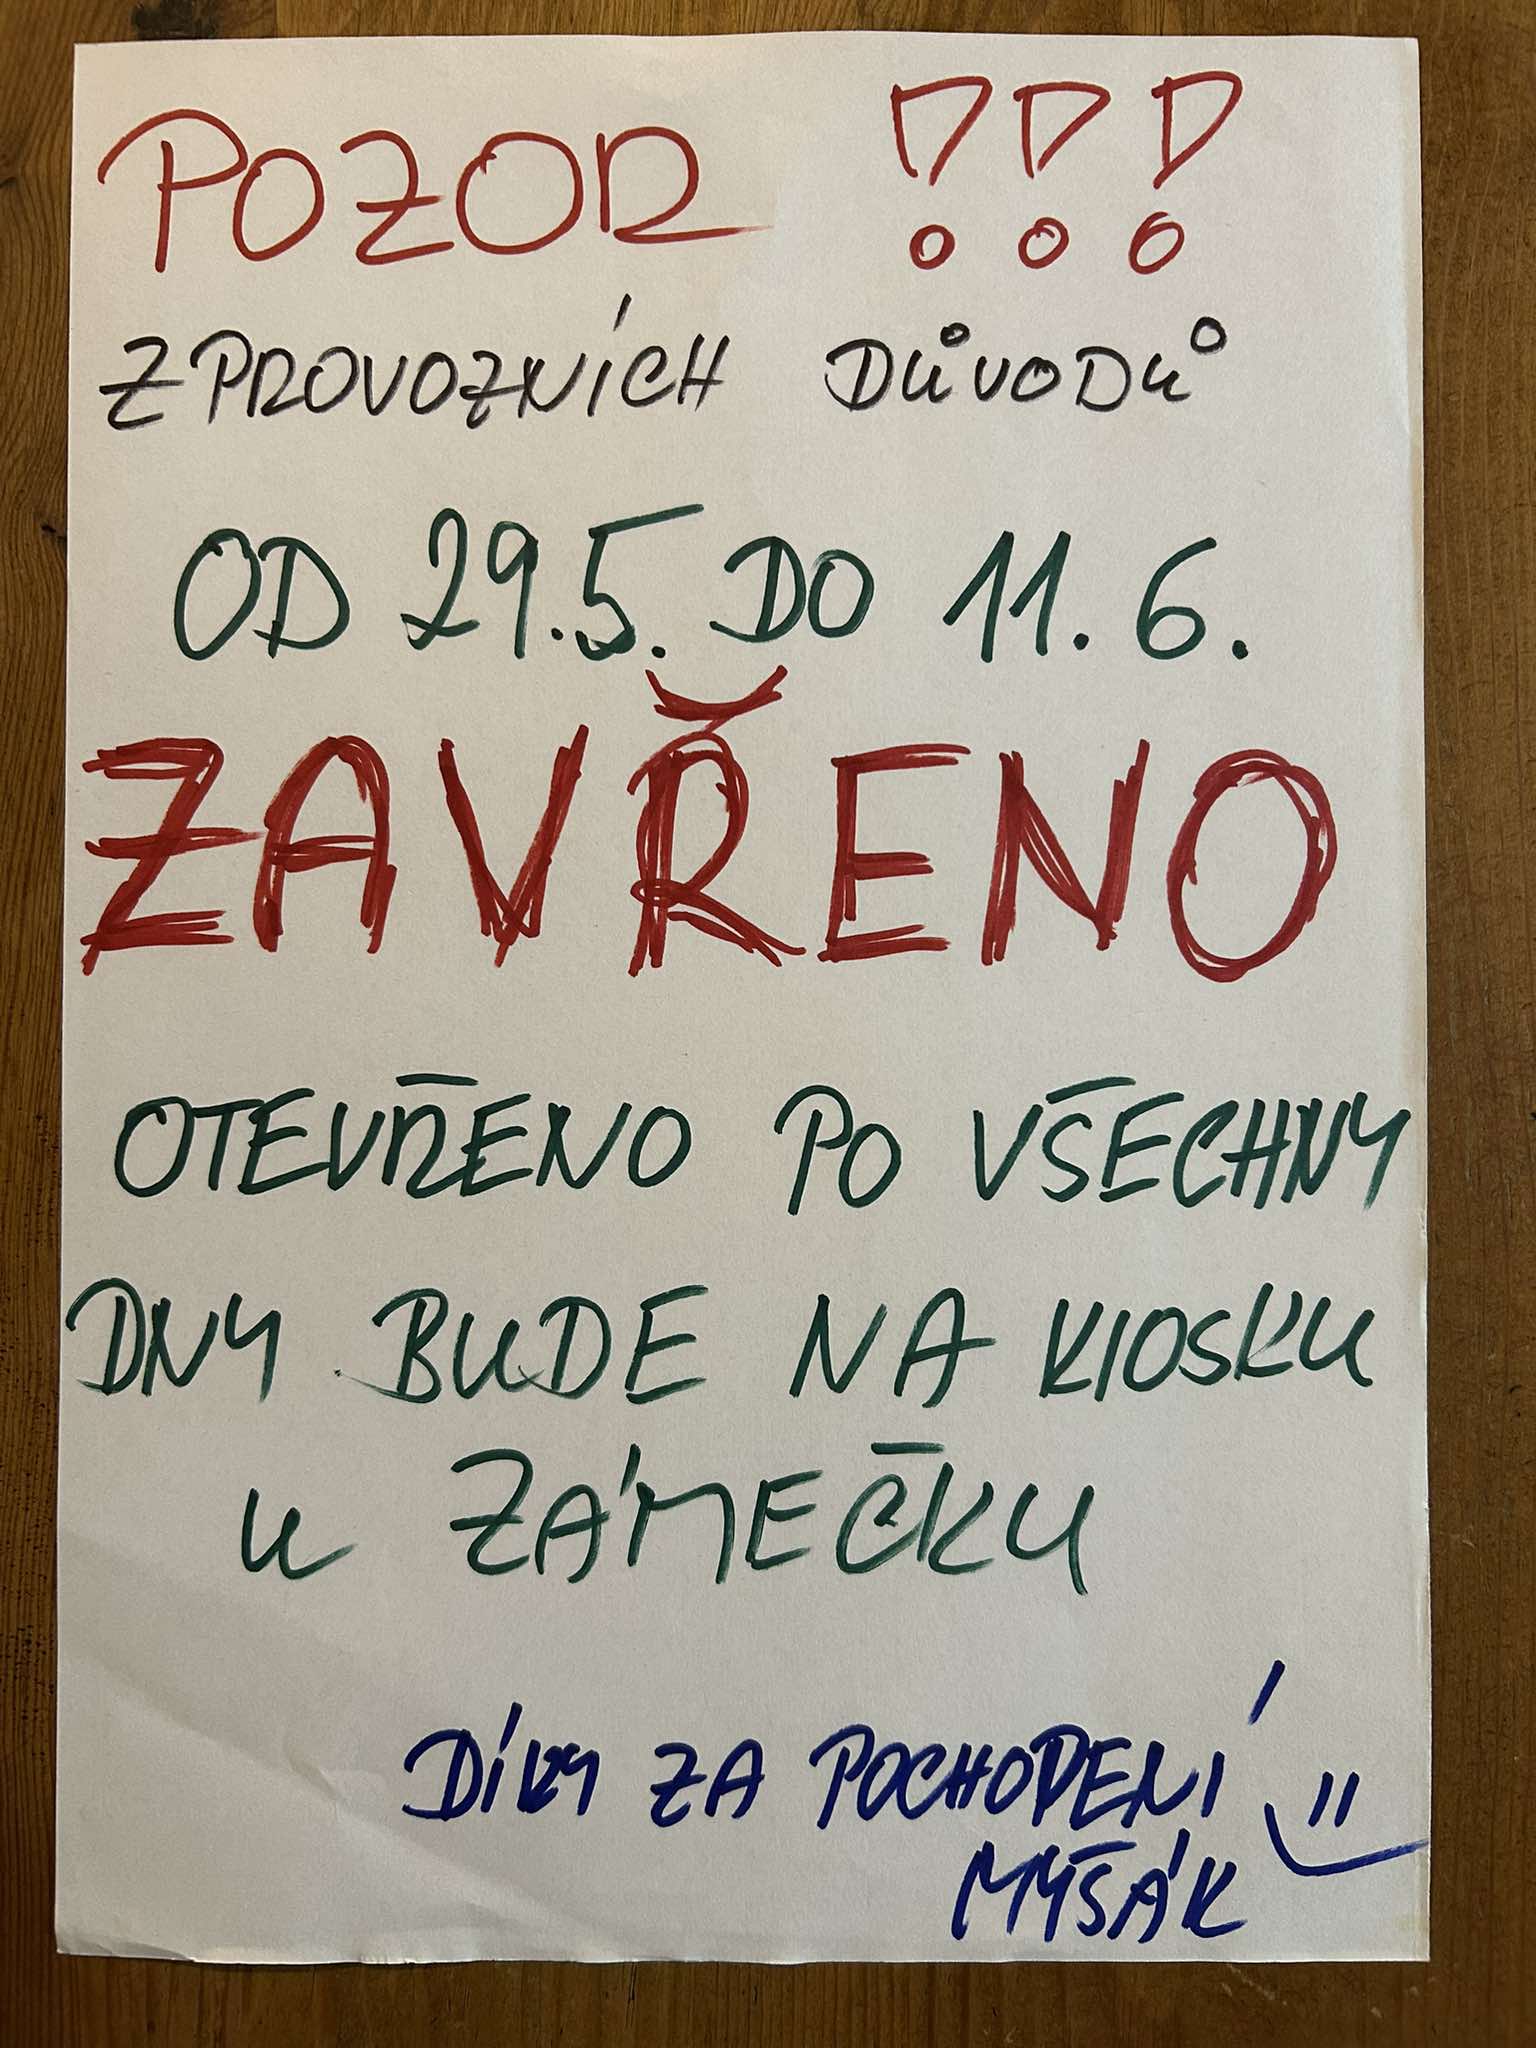 POZOR !!!
Z PROVOZNÍCH DŮVODŮ
OD 29.5. DO 11.6.
ZAVŘENO
OTEVŘENO PO VŠECHNY
DNY BUDE NA KIOSKU
U ZÁMEČKU
DÍKY ZA POCHOPENÍ
MYŠÁK